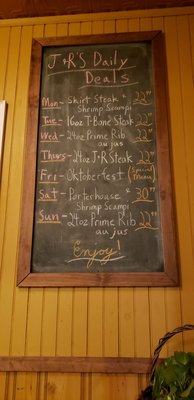 J&R'S Daily
Deals
Mon - Skirt Steak & 22⁰⁰
Shrimp Scampi
Tue - 16oz T-Bone Steak 22⁰⁰
Wed - 24oz Prime Rib 22⁰⁰
au jus
Thurs - 24oz J&R Steak 22⁰⁰
Fri - Oktoberfest (Special
Menu)
Sat - Porterhouse & 30⁰⁰
Shrimp Scampi
Sun - 24oz Prime Rib 22⁰⁰
au jus
Enjoy!